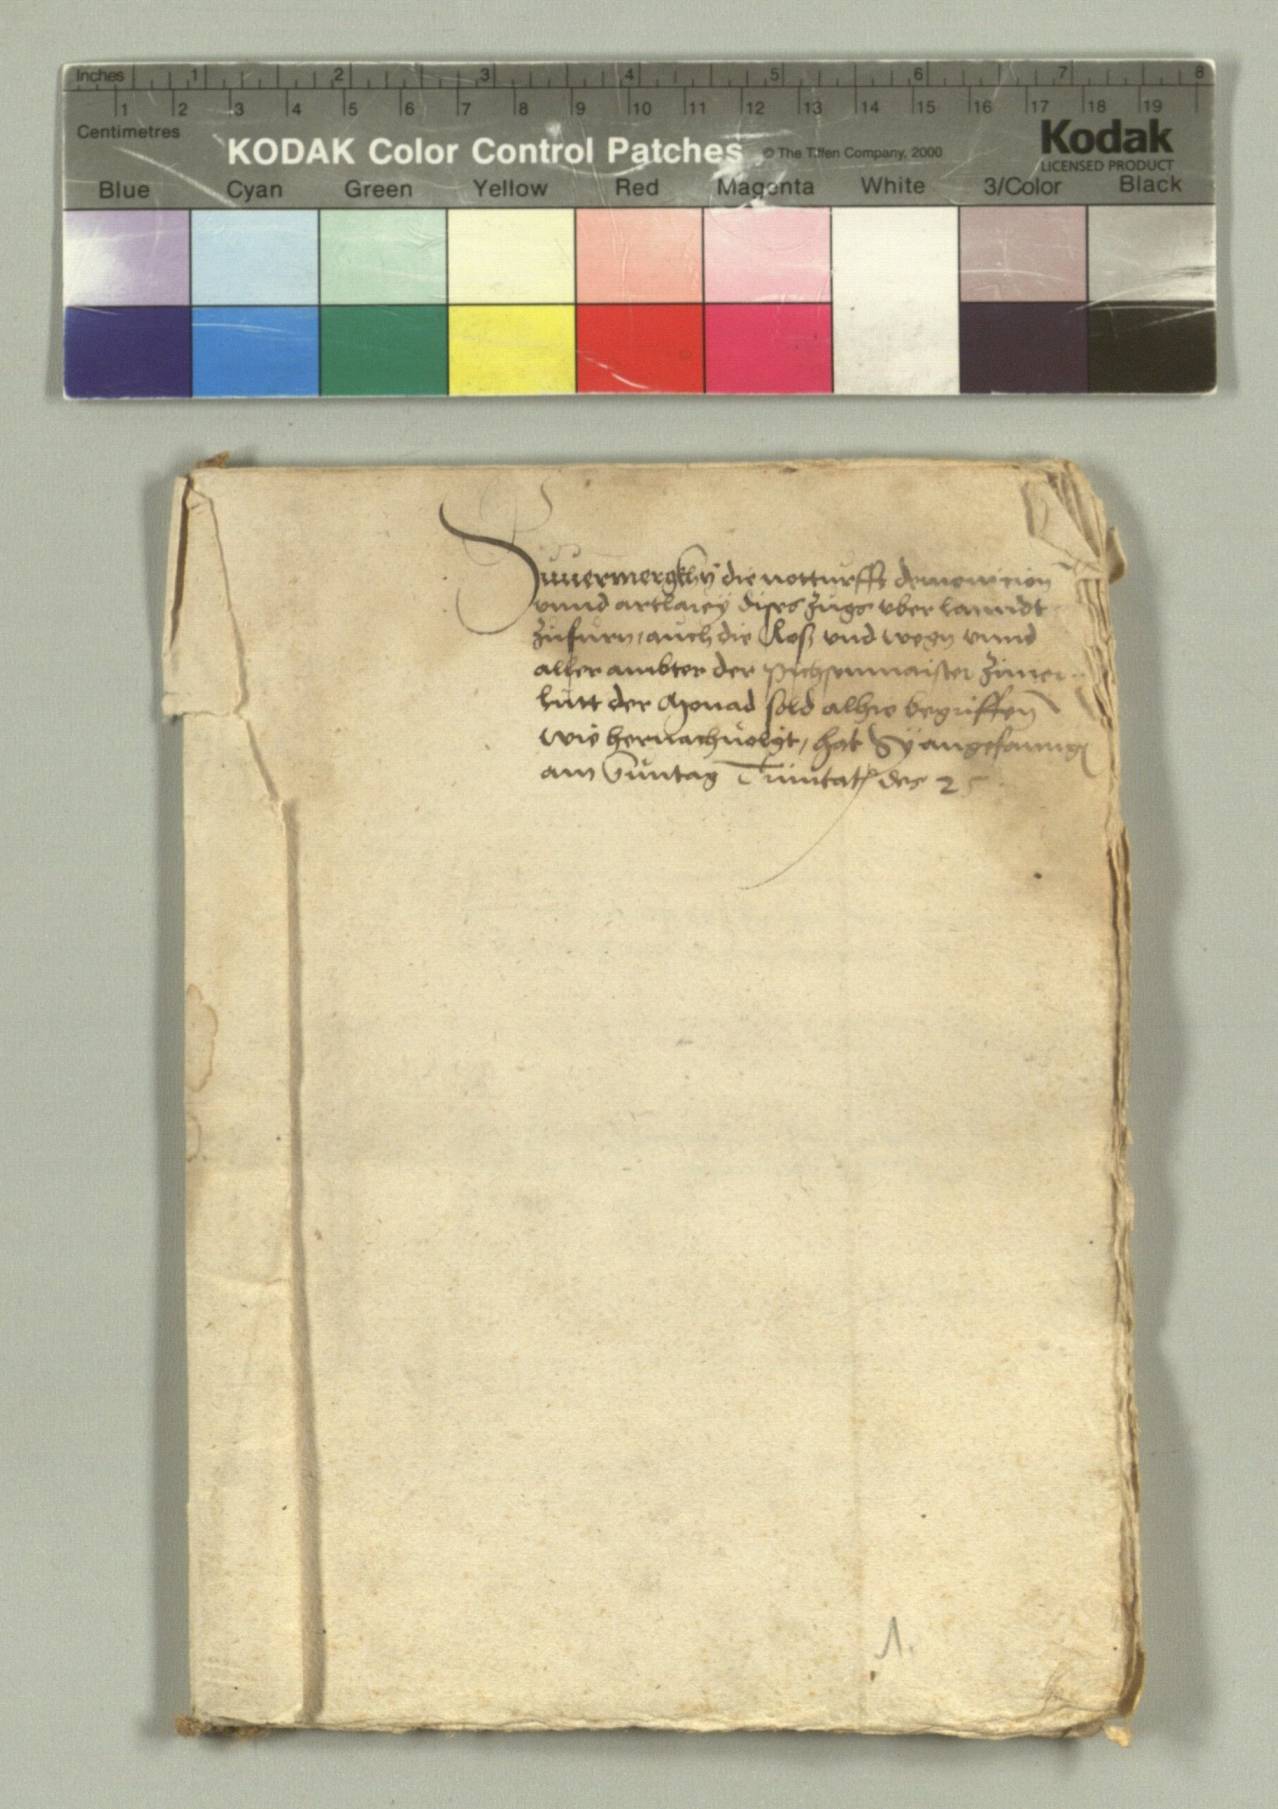 Inches 1 2 3 4 5 6 7 8
1 2 3 4 5 6 7 8 9 10 11 12 13 14 15 16 17 18 19
Centimetres
KODAK Color Control Patches © The Tiffen Company, 2000
Kodak
LICENSED PRODUCT
Blue Cyan Green Yellow Red Magenta White 3/Color Black
die notturfft
vnnd artlarey dises zugs vber lanndt
zufurn, auch die Roß vnd wegn vnnd
aller ambter der pichsenmaister
lutt der Monad sold alhie begriffen
wie hernachuolgt, hat sy angefanngn
am Sunntag Trinitat des 25
1.